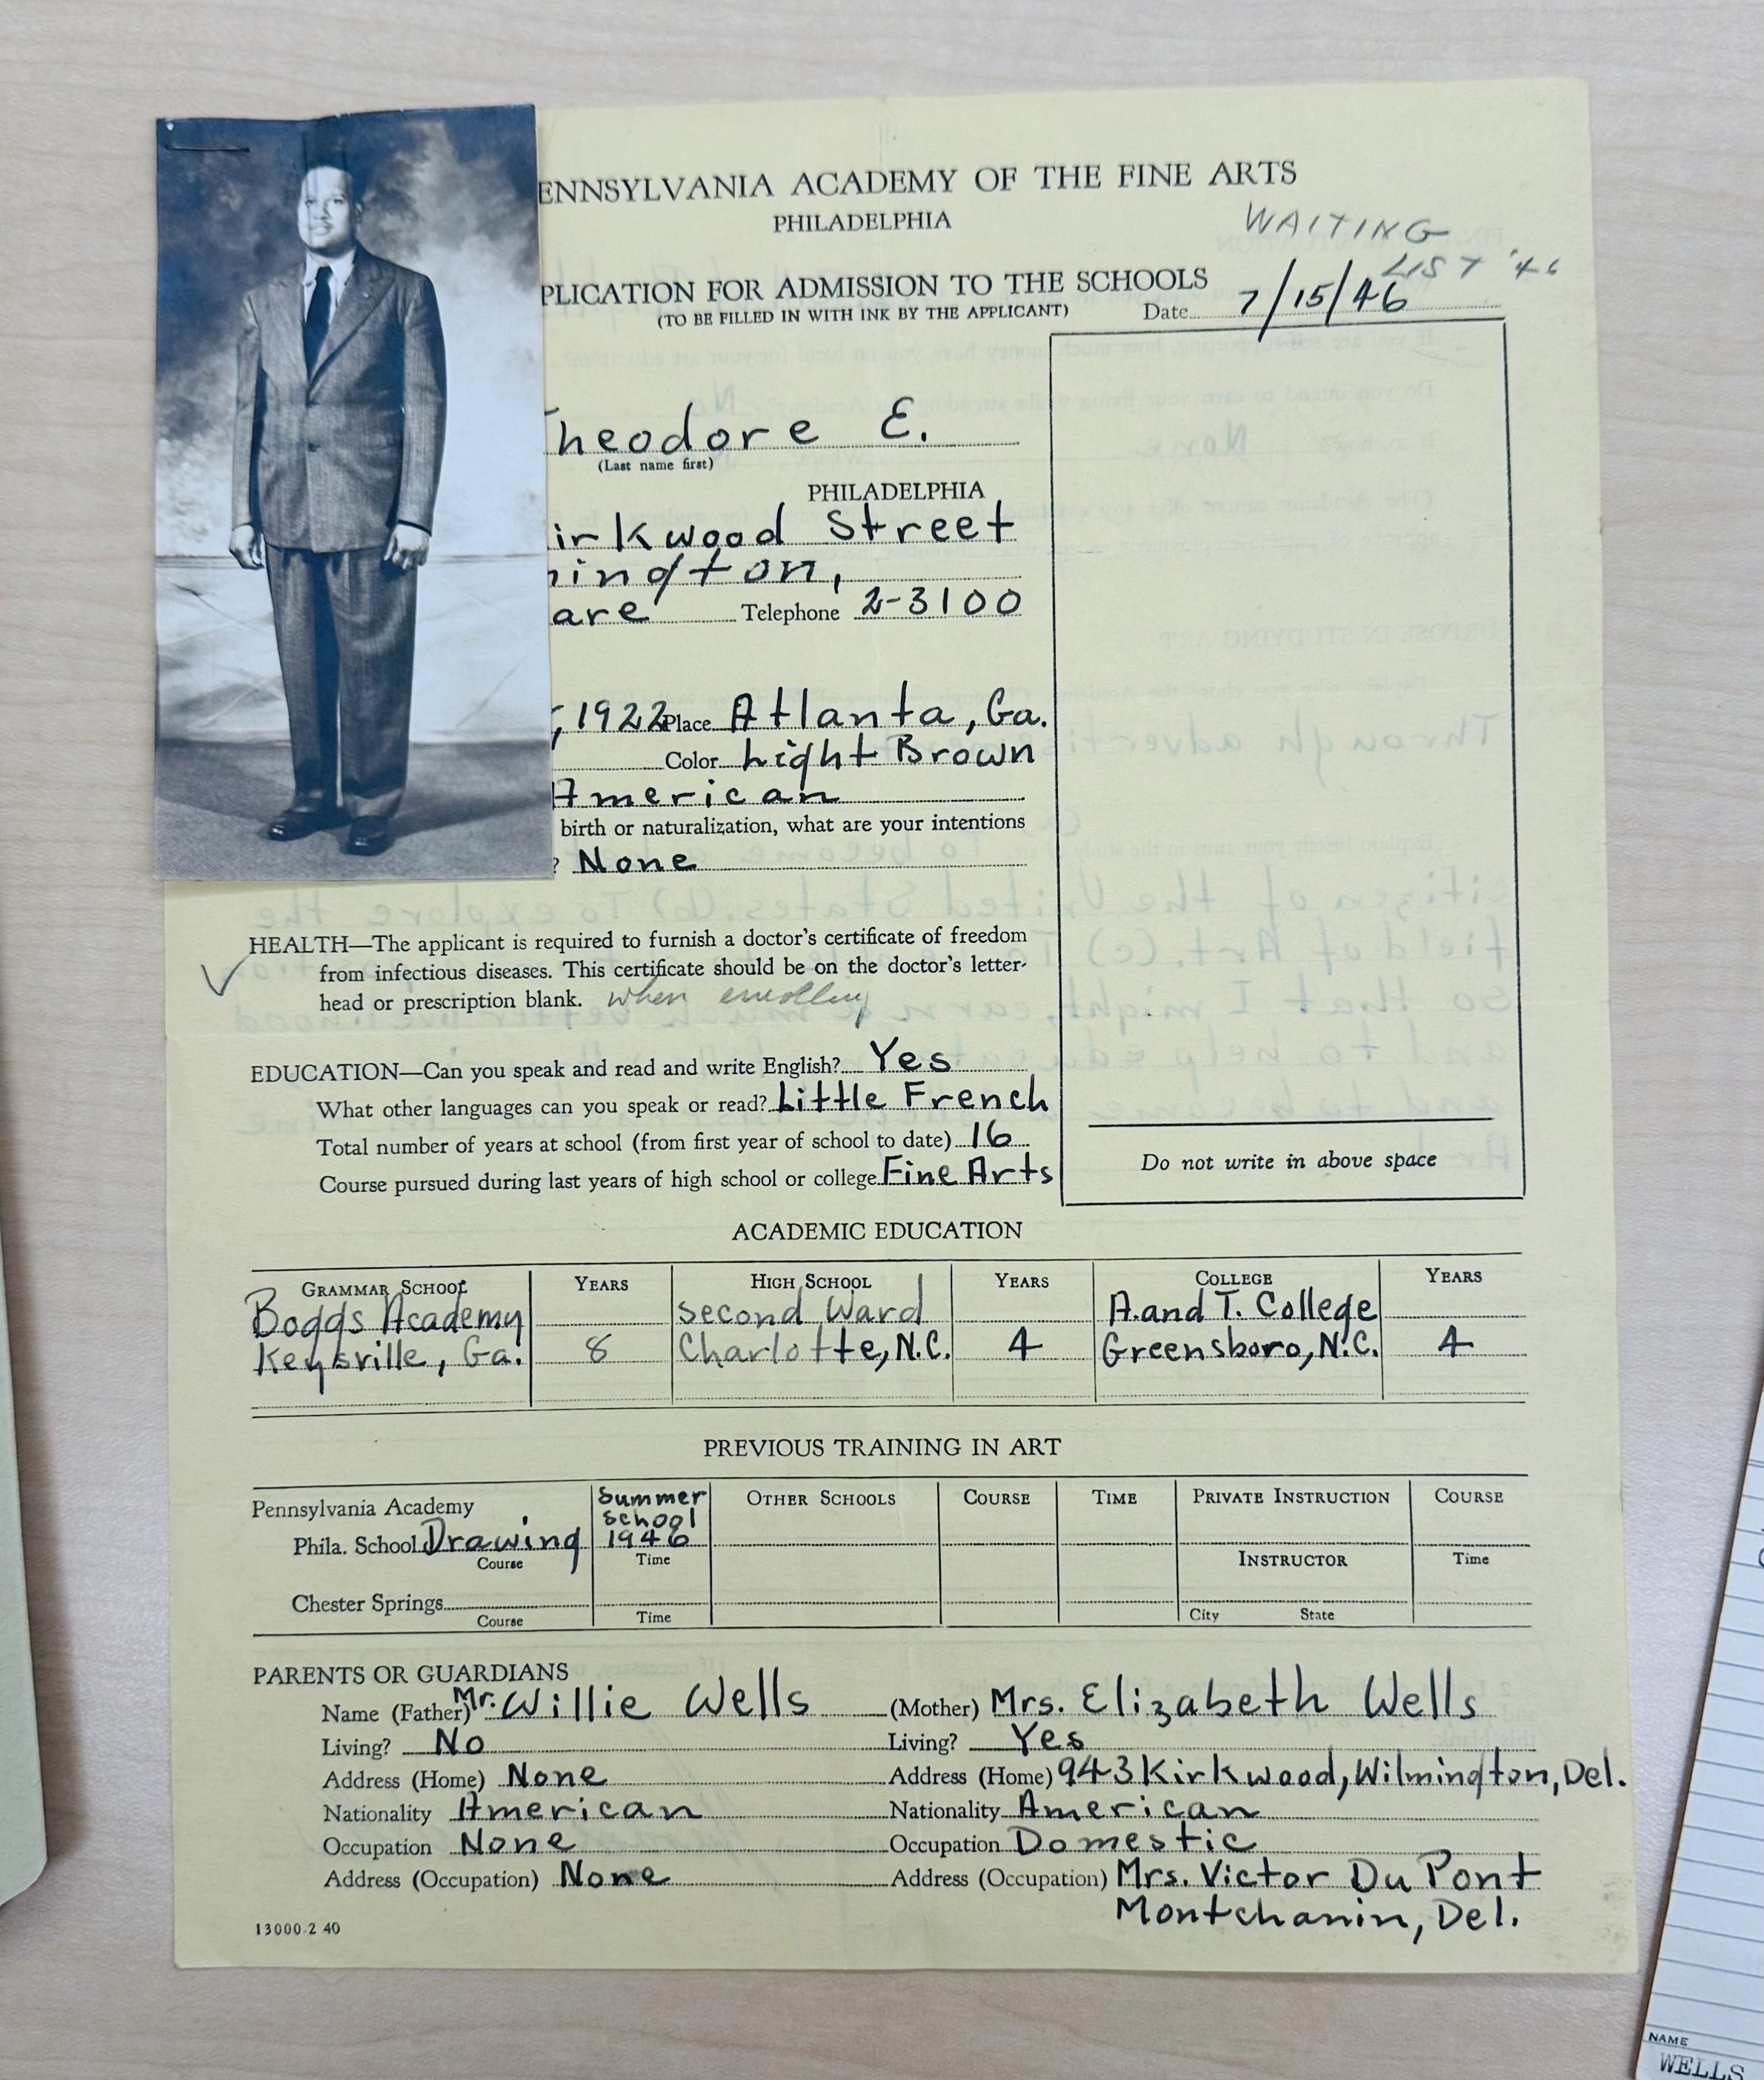 ENNSYLVANIA ACADEMY OF THE FINE ARTS
PHILADELPHIA
WAITING
LIST '46
PLICATION FOR ADMISSION TO THE SCHOOLS
(TO BE FILLED IN WITH INK BY THE APPLICANT)
Date 7/15/46
heodore E.
(Last name first)
PHILADELPHIA
irkwood Street
ington,
are Telephone 2-3100
, 1922 Place Atlanta, Ga.
Color Light Brown
American
birth or naturalization, what are your intentions
? None
HEALTH—The applicant is required to furnish a doctor's certificate of freedom
from infectious diseases. This certificate should be on the doctor's letter-
head or prescription blank. when enrolling
EDUCATION—Can you speak and read and write English? Yes
What other languages can you speak or read? Little French
Total number of years at school (from first year of school to date) 16
Course pursued during last years of high school or college Fine Arts
Do not write in above space
ACADEMIC EDUCATION
GRAMMAR SCHOOL YEARS HIGH SCHOOL YEARS COLLEGE YEARS
Boggs Academy Second Ward A. and T. College
Keysville, Ga. 8 Charlotte, N.C. 4 Greensboro, N.C. 4
PREVIOUS TRAINING IN ART
Pennsylvania Academy Summer School 1946 OTHER SCHOOLS COURSE TIME PRIVATE INSTRUCTION COURSE
Phila. School Drawing
Course Time INSTRUCTOR Time
Chester Springs
Course Time City State
PARENTS OR GUARDIANS
Name (Father) Mr. Willie Wells (Mother) Mrs. Elizabeth Wells
Living? No Living? Yes
Address (Home) None Address (Home) 943 Kirkwood, Wilmington, Del.
Nationality American Nationality American
Occupation None Occupation Domestic
Address (Occupation) None Address (Occupation) Mrs. Victor Du Pont
Montchanin, Del.
13000-2 40
NAME
WELLS